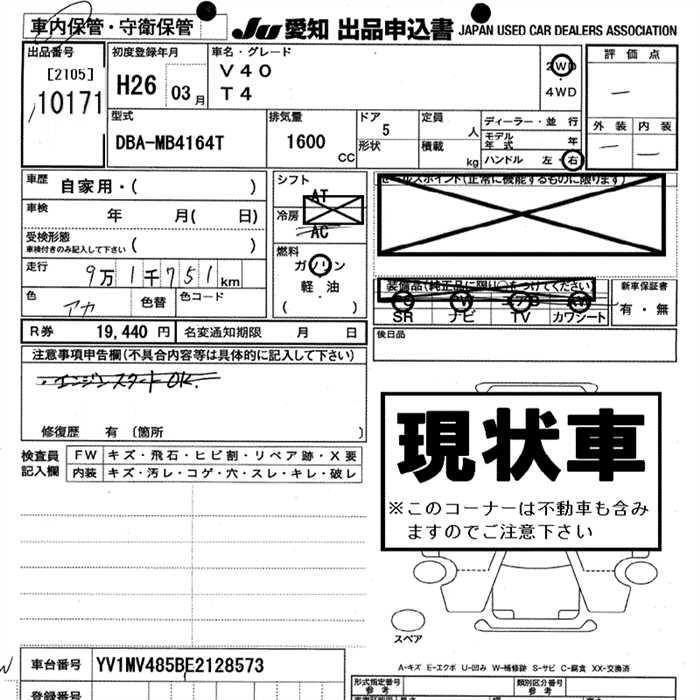 車内保管・守衛保管
JU 愛知 出品申込書 JAPAN USED CAR DEALERS ASSOCIATION
出品番号
[2105]
10171
初度登録年月
H26 03月
車名・グレード
V40
T4
2WD
4WD
評価点
—
外装 内装
— —
型式
DBA-MB4164T
排気量
1600 CC
ドア
5
形状
定員 人
積載 kg
ディーラー・並行
モデル年式 年
ハンドル 左・右
車歴 自家用・( )
車検 年 月( 日)
受検形態
車検付きのみ記入して下さい ( )
走行 9万1千751km
色 アカ 色替 色コード
R券 19,440 円 名変通知期限 月 日
シフト
AT
冷房
AC
燃料
ガソリン
軽・油
( )
セールスポイント(正常に機能するものに限ります)
装備品(純正品に限り○をつけてください)
SR ナビ TV カワシート
新車保証書
有・無
後日品
注意事項申告欄(不具合内容等は具体的に記入して下さい)
・エンジンスタートOK.
修復歴 有 〔箇所 〕
検査員記入欄
FW キズ・飛石・ヒビ割・リペア跡・X要
内装 キズ・汚レ・コゲ・穴・スレ・キレ・破レ
現状車
※このコーナーは不動車も含み
ますのでご注意下さい
スペア
A-キズ E-エクボ U-凹み W-補修跡 S-サビ C-腐食 XX-交換済
車台番号 YV1MV485BE2128573
登録番号
型式指定番号
参考
類別区分番号
参考